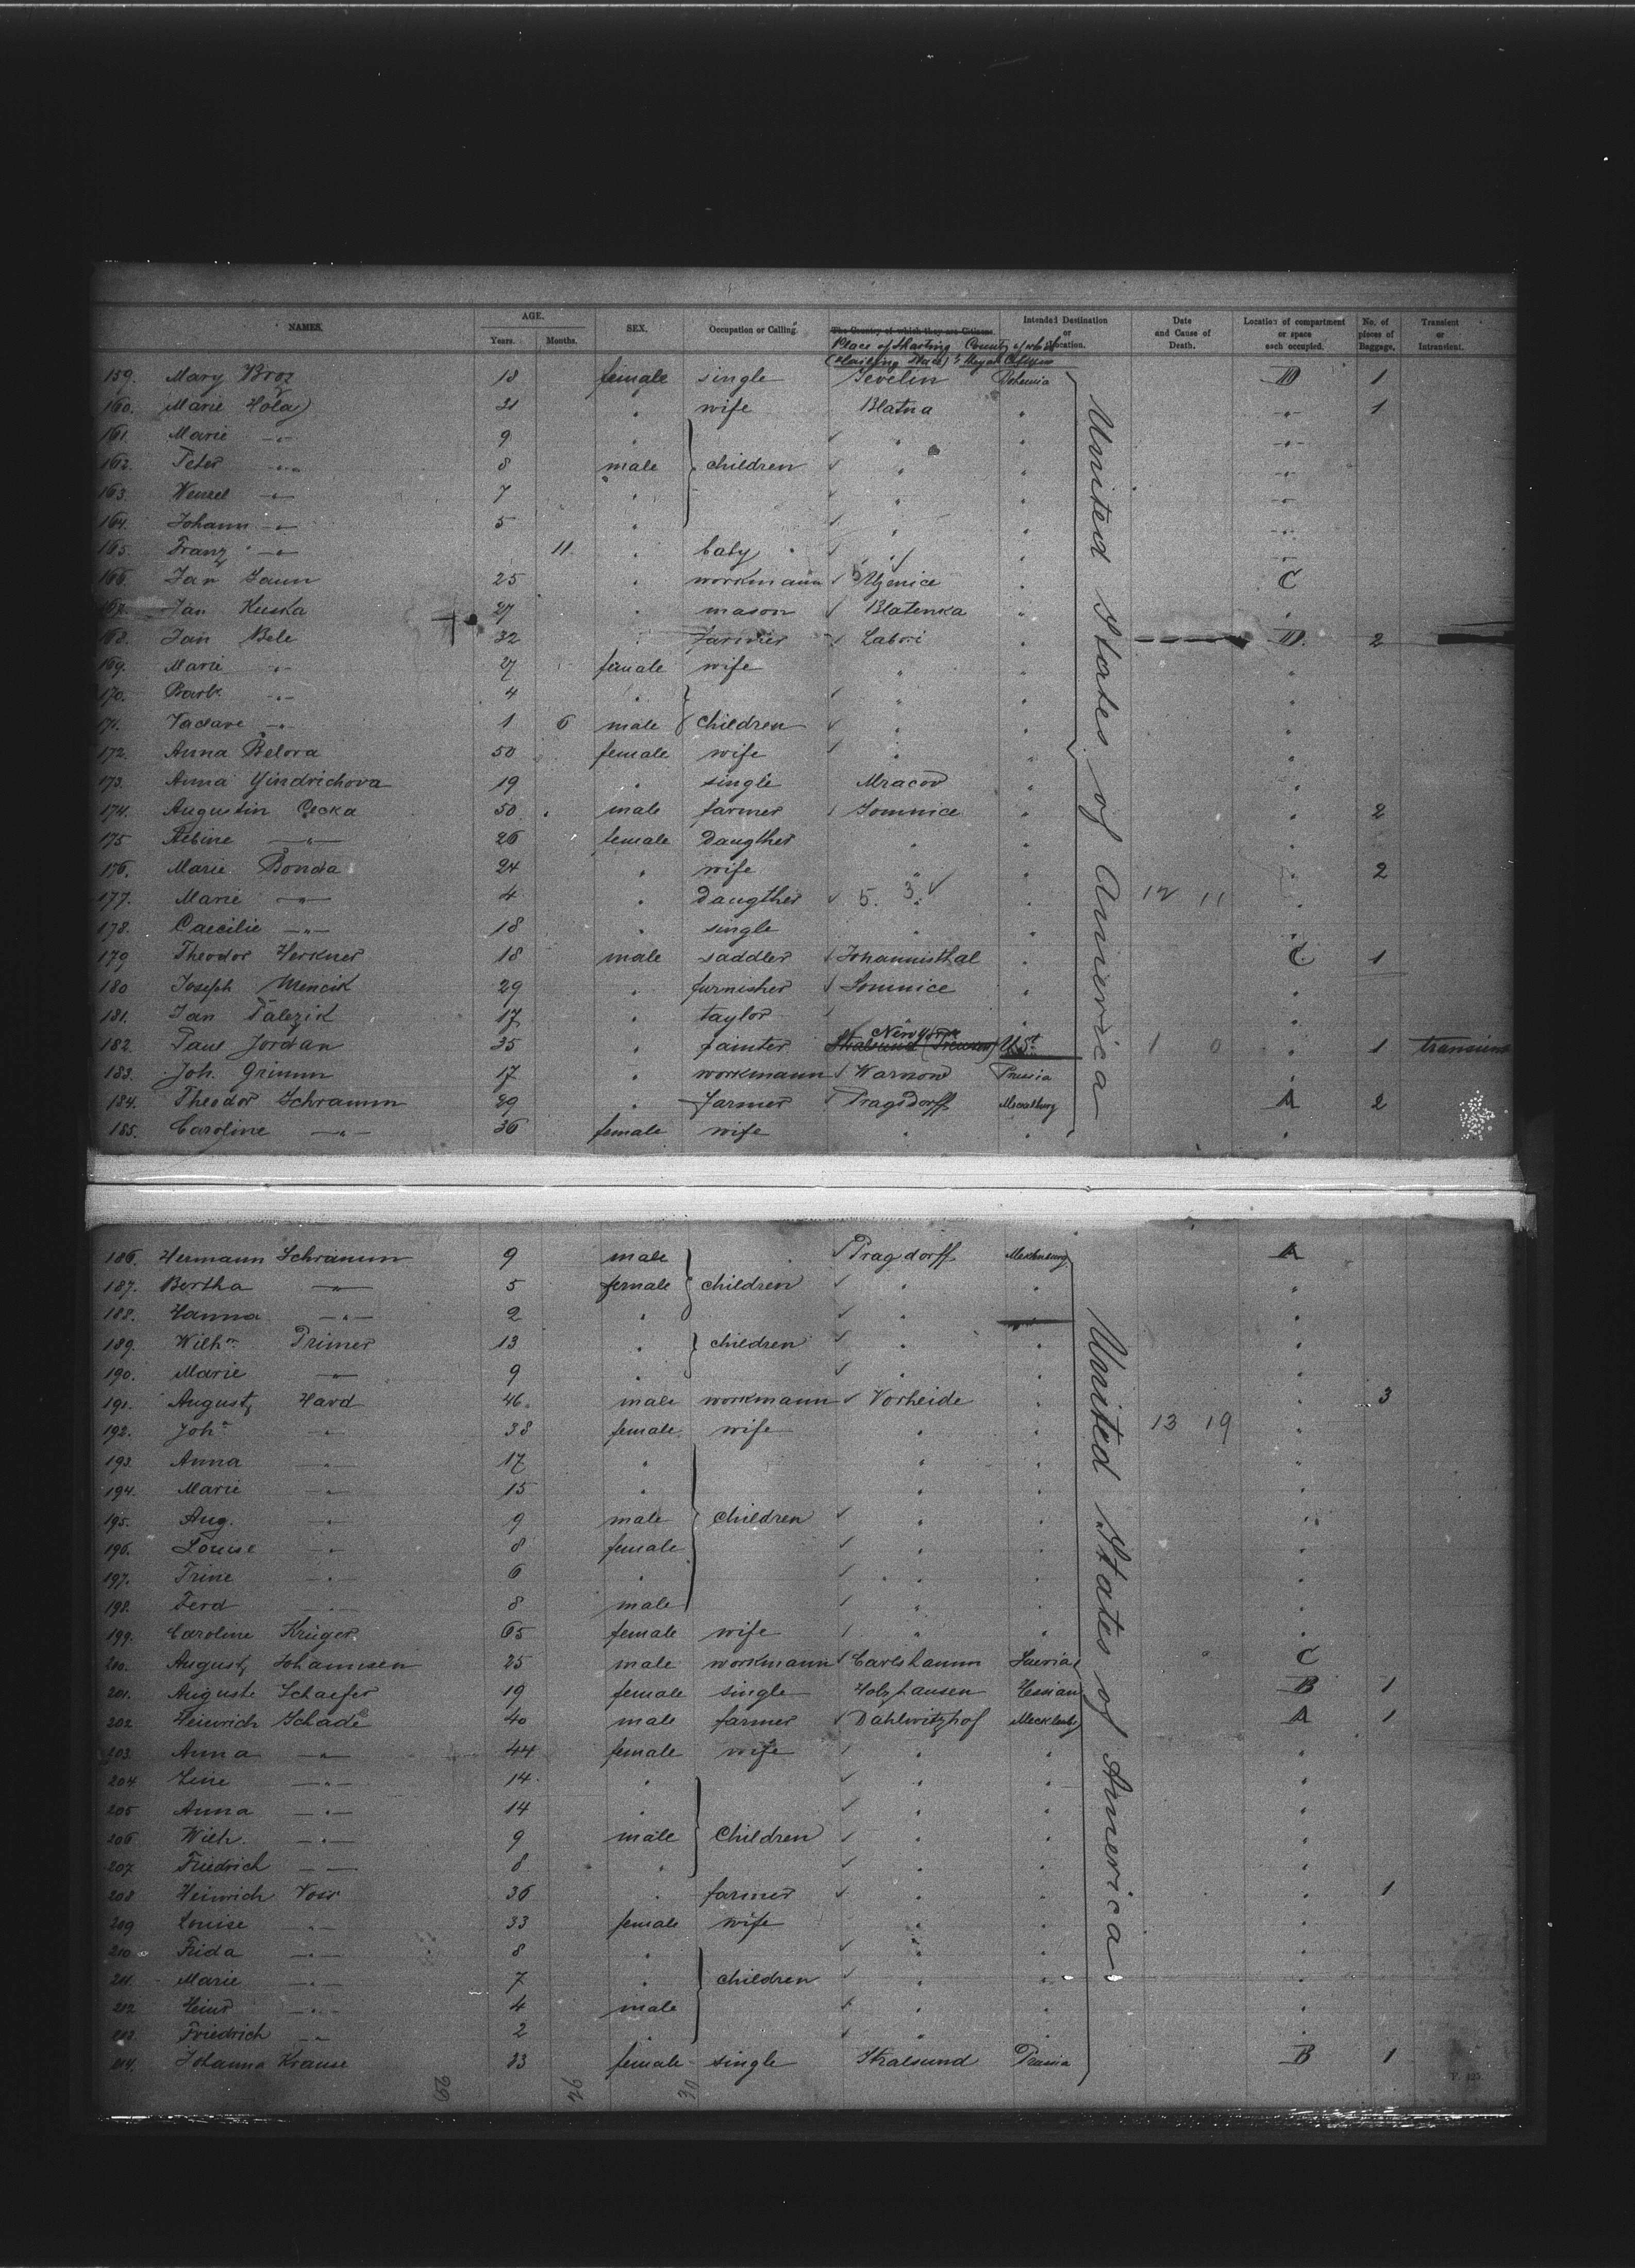 NAMES. AGE. SEX. Occupation or Calling. The Country of which they are Citizens. Intended Destination or Location. Date and Cause of Death. Location of compartment or space each occupied. No. of pieces of Baggage. Transient or Intransient.
Years. Months. Place of Starting Country of which
159. Mary Broz 18 female single Bohemia D 1
160. Marie Hola 31 " wife Blatna " -"- 1
161. Marie -"- 9 " " " -"-
162. Peter -"- 8 male children " " -"-
163. Wenzel -"- 7 " " " -"-
164. Johann -"- 5 " " " -"-
165. Franz -"- 11 " baby " " -"-
166. Jan Jaun 25 " workmann Uzenice " C
167. Jan Kuska 27 " mason Blatenka " "
168. Jan Bele 32 " farmer Labri " D. 2
169. Marie " 27 female wife " " "
170. Barb. -"- 4 " " " "
171. Vaclave -"- 1 6 male children " " "
172. Anna Belova 50 female wife " " "
173. Anna Yindrichova 19 " single Mracov " "
174. Augustin Cecka 50 male farmer Lomnice " " 2
175 Albine -"- 26 female daugther " " "
176. Marie Bonda 24 " wife " " " 2
177. Marie -"- 4 " daugther 5. 3. " 12 11 "
178. Caecilie -"- 18 " single " " "
179 Theodor Herkner 18 male saddler Johannisthal " C 1
180 Joseph Mencik 29 " furnisher Lomnice " "
181. Jan Palezik 17 " taylor " " "
182. Paul Jordan 35 " painter New York Stralsund (Preussen) U.St. 1 0 " 1 transient
183. Joh. Grimm 17 " workmann Warnow Prussia "
184. Theodor Schramm 29 " farmer Pragsdorff A 2
185. Caroline -"- 36 female wife " " "
United States of America
186. Hermann Schramm 9 male Pragsdorff Mecklenburg A
187. Bertha -"- 5 female children " " "
188. Hanna -"- 2 " " "
189. Wilh. Primer 13 " children " " "
190. Marie -"- 9 " " " "
191. August Hard 46 male workmann Vorheide " " 3
192. Joh. " 38 female wife " " 13 19 "
193. Anna -"- 17 " " " "
194. Marie -"- 15 " " " "
195. Aug. -"- 9 male children " " "
196. Louise -"- 8 female " " "
197. Trine -"- 6 " " " "
198. Ferd -"- 8 male " " "
199. Caroline Krüger 65 female wife " " "
200. August Johannsen 25 male workmann Carlshamn Suevia C
201. Auguste Schaefer 19 female single Holzhausen Hessian B 1
202 Heinrich Schade 40 male farmer Dahlwitzhof Mecklenb. A 1
203. Anna -"- 44 female wife " " "
204. Line -"- 14 " " " "
205 Anna -"- 14 " " " "
206 Wilh. -"- 9 male Children " " "
207. Friedrich -"- 8 " " " "
208 Heinrich Voss 36 " farmer " " " 1
209 Louise -"- 33 female wife " " "
210 Frida -"- 8 " " " "
211. Marie -"- 7 " children " " "
212 Heinr -"- 4 male " " "
213. Friedrich -"- 2 " " " "
214. Johanna Krause 33 female single Stralsund Prussia B 1
United States of America
29 26 30